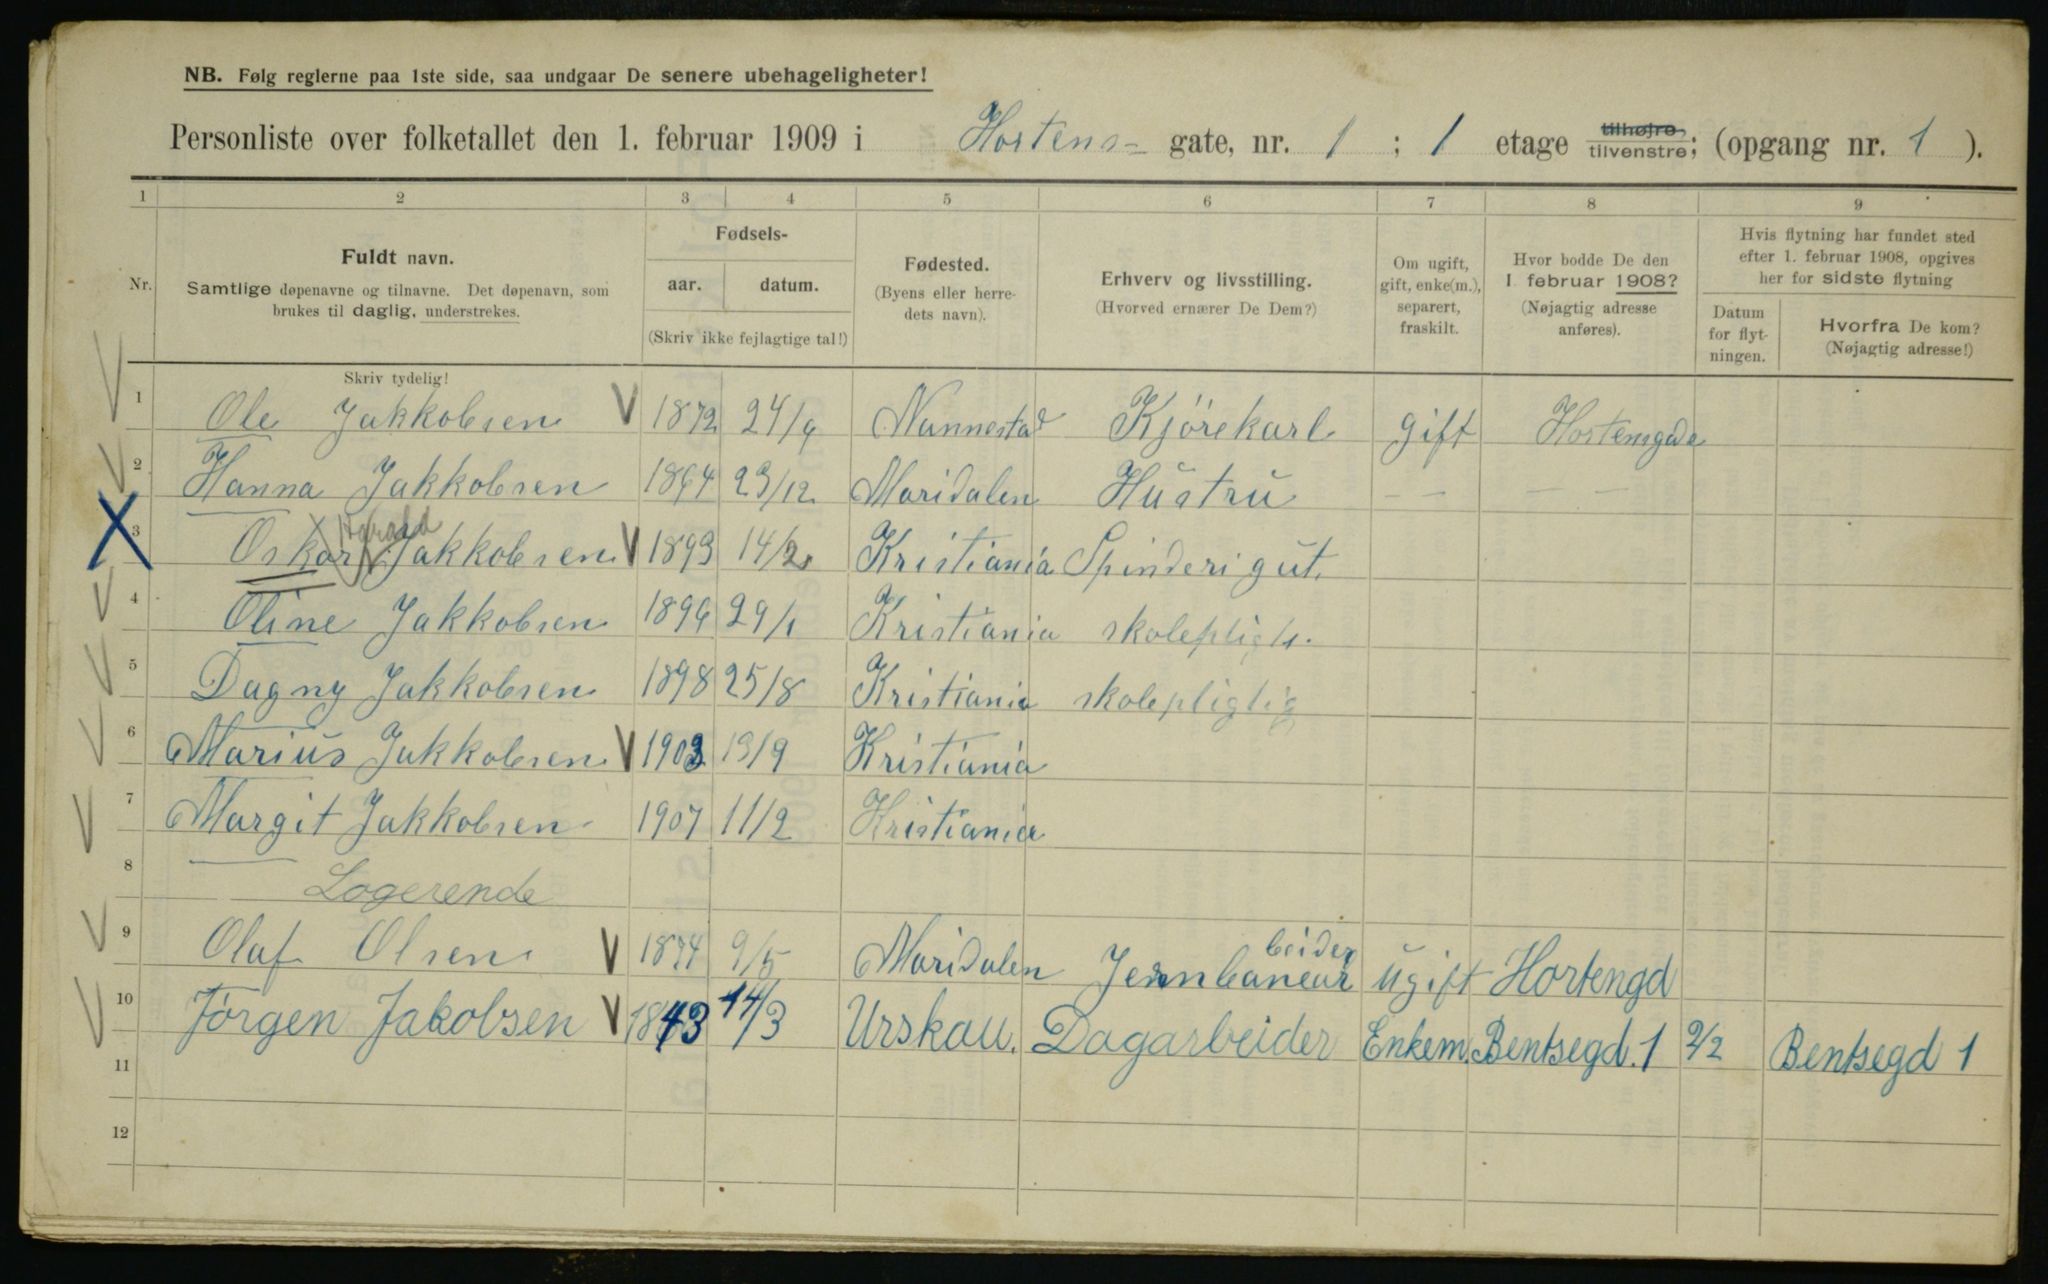 NB. Følg reglerne paa 1ste side, saa undgaar De senere ubehageligheter!
Personliste over folketallet den 1. februar 1909 i Hortens- gate, nr. 1 ; 1 etage tilhøjre, tilvenstre; (opgang nr. 1 ).
1 2 3 4 5 6 7 8 9
Nr.
Fuldt navn.
Samtlige døpenavne og tilnavne. Det døpenavn, som
brukes til daglig, understrekes.
Fødsels-
aar. datum.
(Skriv ikke fejlagtige tal!)
Fødested.
(Byens eller herre-
dets navn).
Erhverv og livsstilling.
(Hvorved ernærer De Dem?)
Om ugift,
gift, enke(m.),
separert,
fraskilt.
Hvor bodde De den
1 februar 1908?
(Nøjagtig adresse
anføres).
Hvis flytning har fundet sted
efter 1. februar 1908, opgives
her for sidste flytning
Datum
for flyt-
ningen.
Hvorfra De kom?
(Nøjagtig adresse!)
Skriv tydelig!
1 Ole Jakkobsen V 1872 24/9 Nannestad Kjörekarl gift Hortensgade
2 Hanna Jakkobsen 1864 23/12 Maridalen Hustru — — — —
Harald
3 Oskar Jakkobsen V 1893 14/2 Kristiania Spinderigut.
4 Oline Jakkobsen 1896 29/1 Kristiania skolepligt.
5 Dagny Jakkobsen 1898 25/8 Kristiania skolepligtig
6 Marius Jakkobsen V 1903 13/9 Kristiania
7 Margit Jakkobsen 1907 11/2 Kristiania
8 Logerende
9 Olaf Olsen V 1874 9/5 Maridalen Jernbanear beider ugift Hortengd
10 Jörgen Jakobsen V 1843 14/3 Urskau. Dagarbeider Enkem. Bentsegd. 1 2/2 Bentsegd 1
11
12